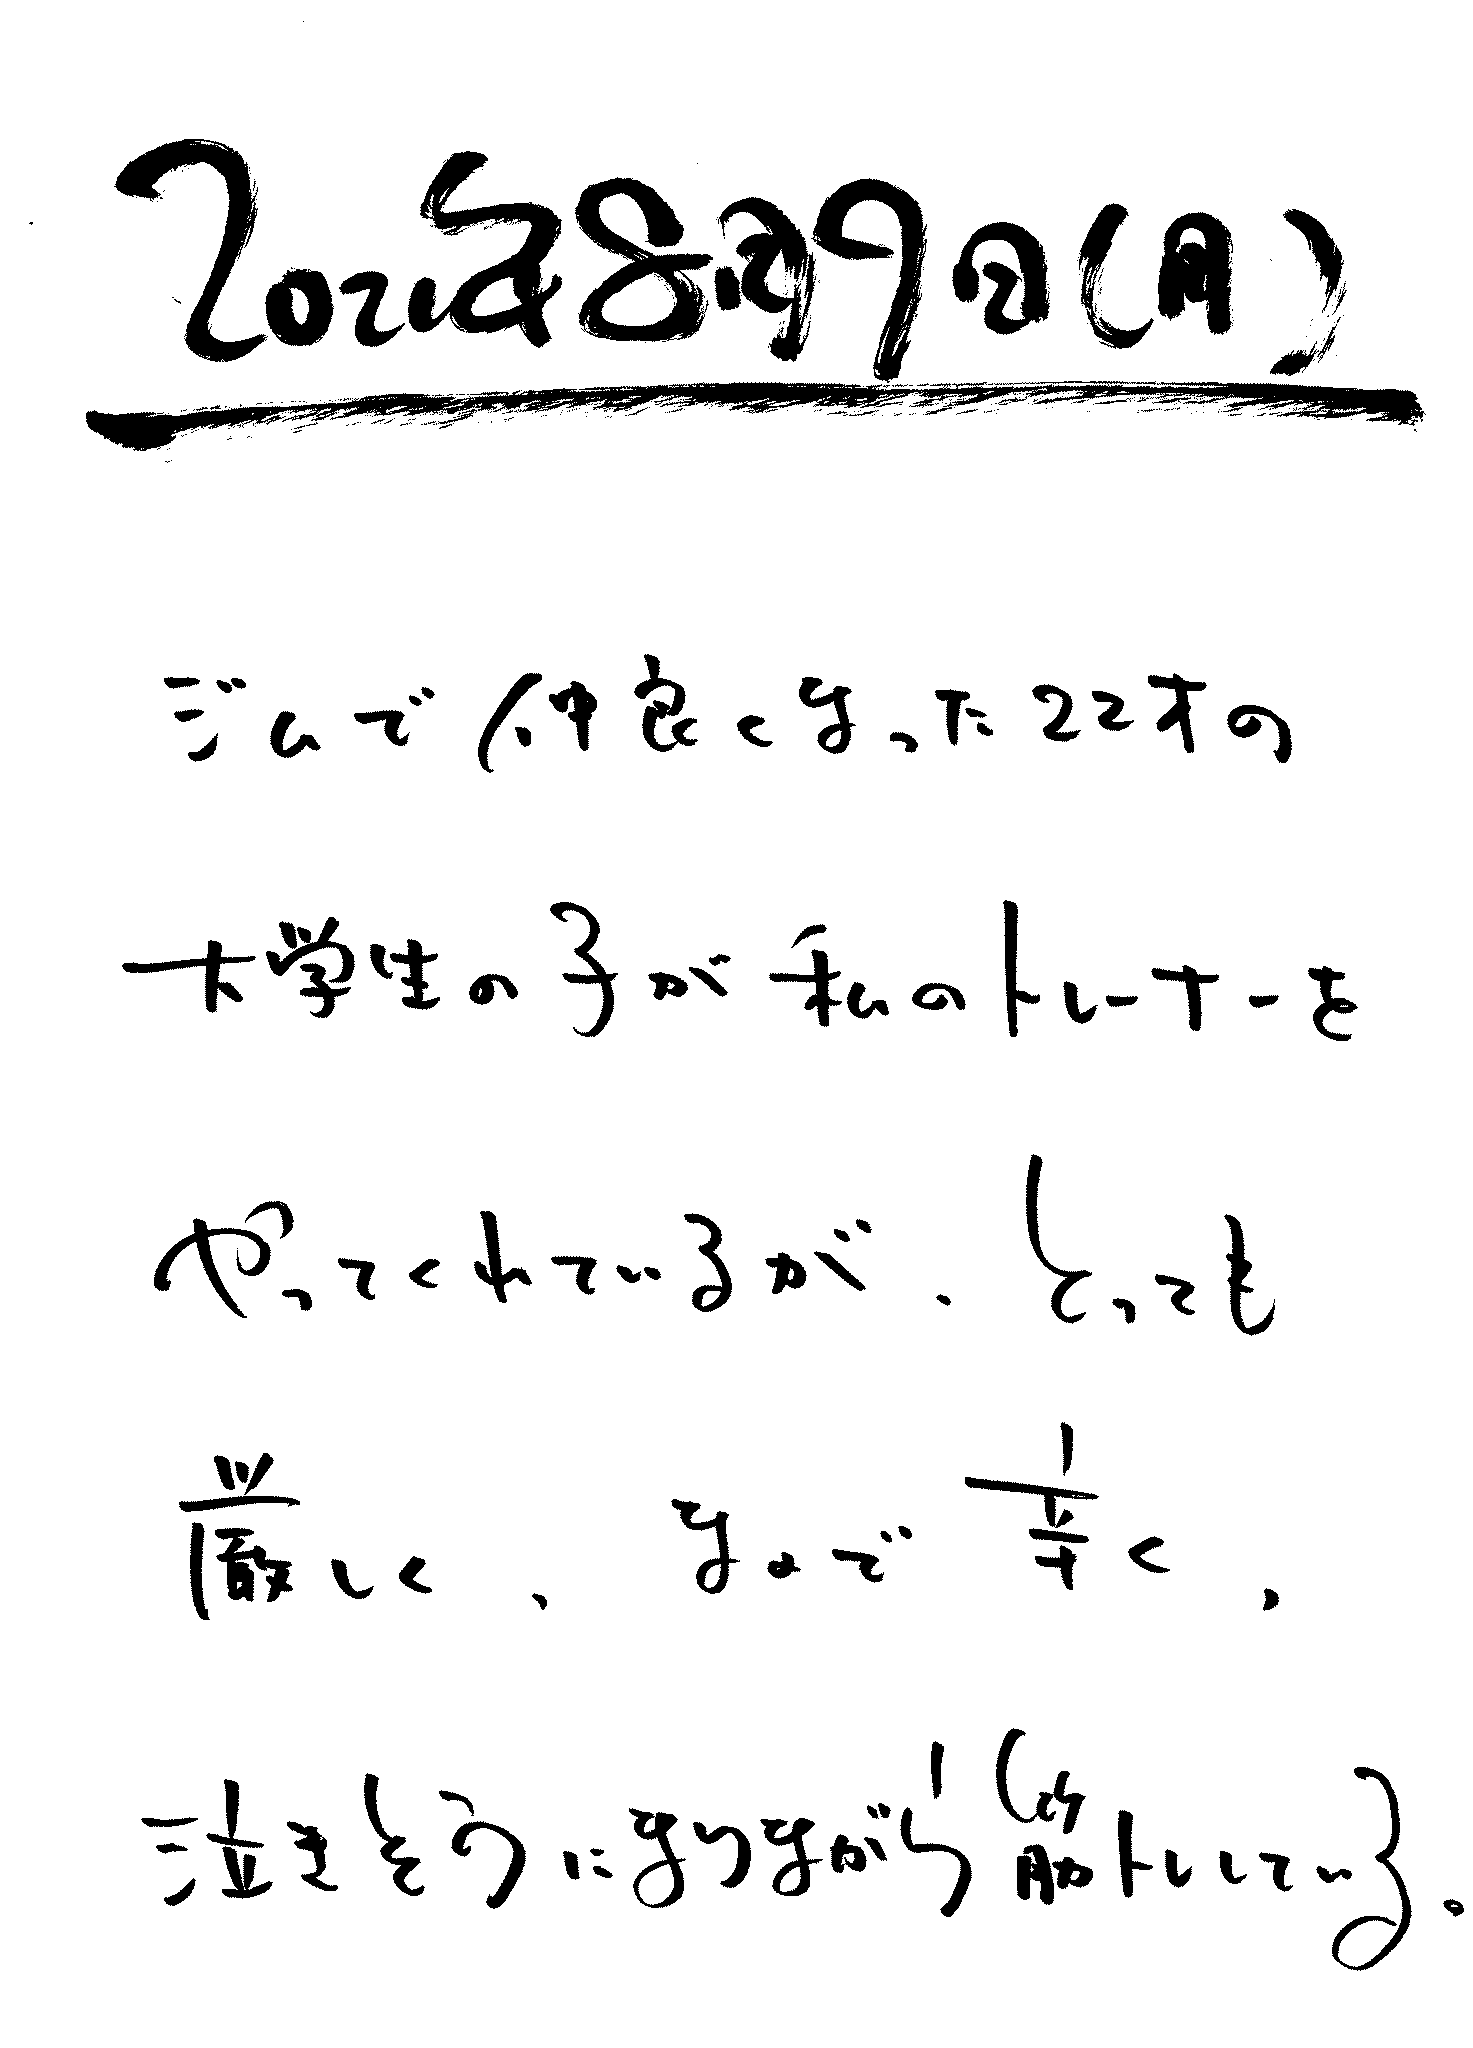 2021年8月9日(月)
ジムで仲良くなった22才の
大学生の子が私のトレーナーを
やってくれているが、とっても
厳しく、なので辛く、
泣きそうになりながら筋トレしている。